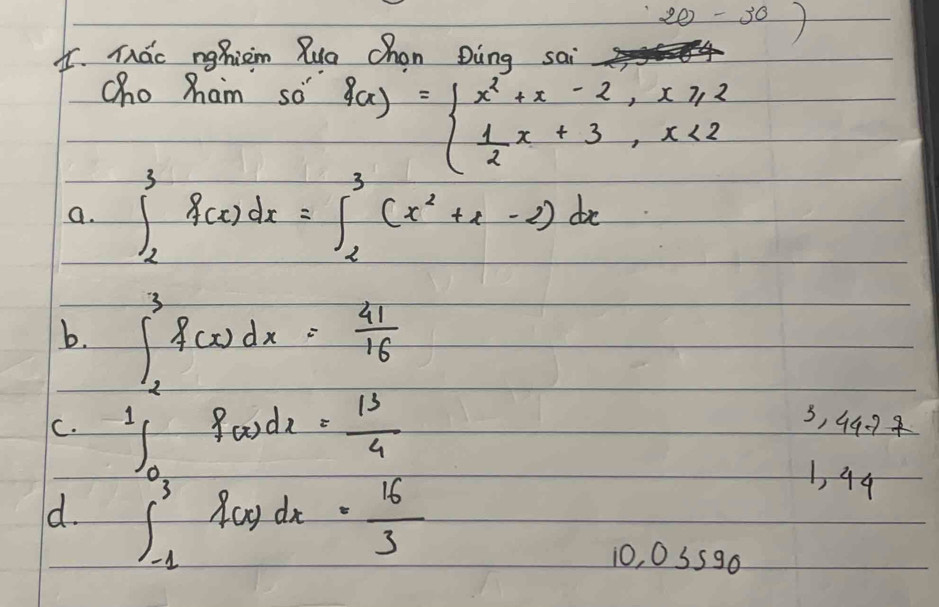 20 - 30 )
I. Trắc nghiệm lựa chọn Đúng sai
Cho hàm số f(x) = { x² + x - 2 , x ⩾ 2
1/2 x + 3 , x < 2
a. ∫₂³ f(x) dx = ∫₂³ (x² + x - 2) dx
b. ∫₂³ f(x) dx = 41/16
c. ∫₀¹ f(x) dx = 13/4
d. ∫₋₁³ f(x) dx = 16/3
1,44